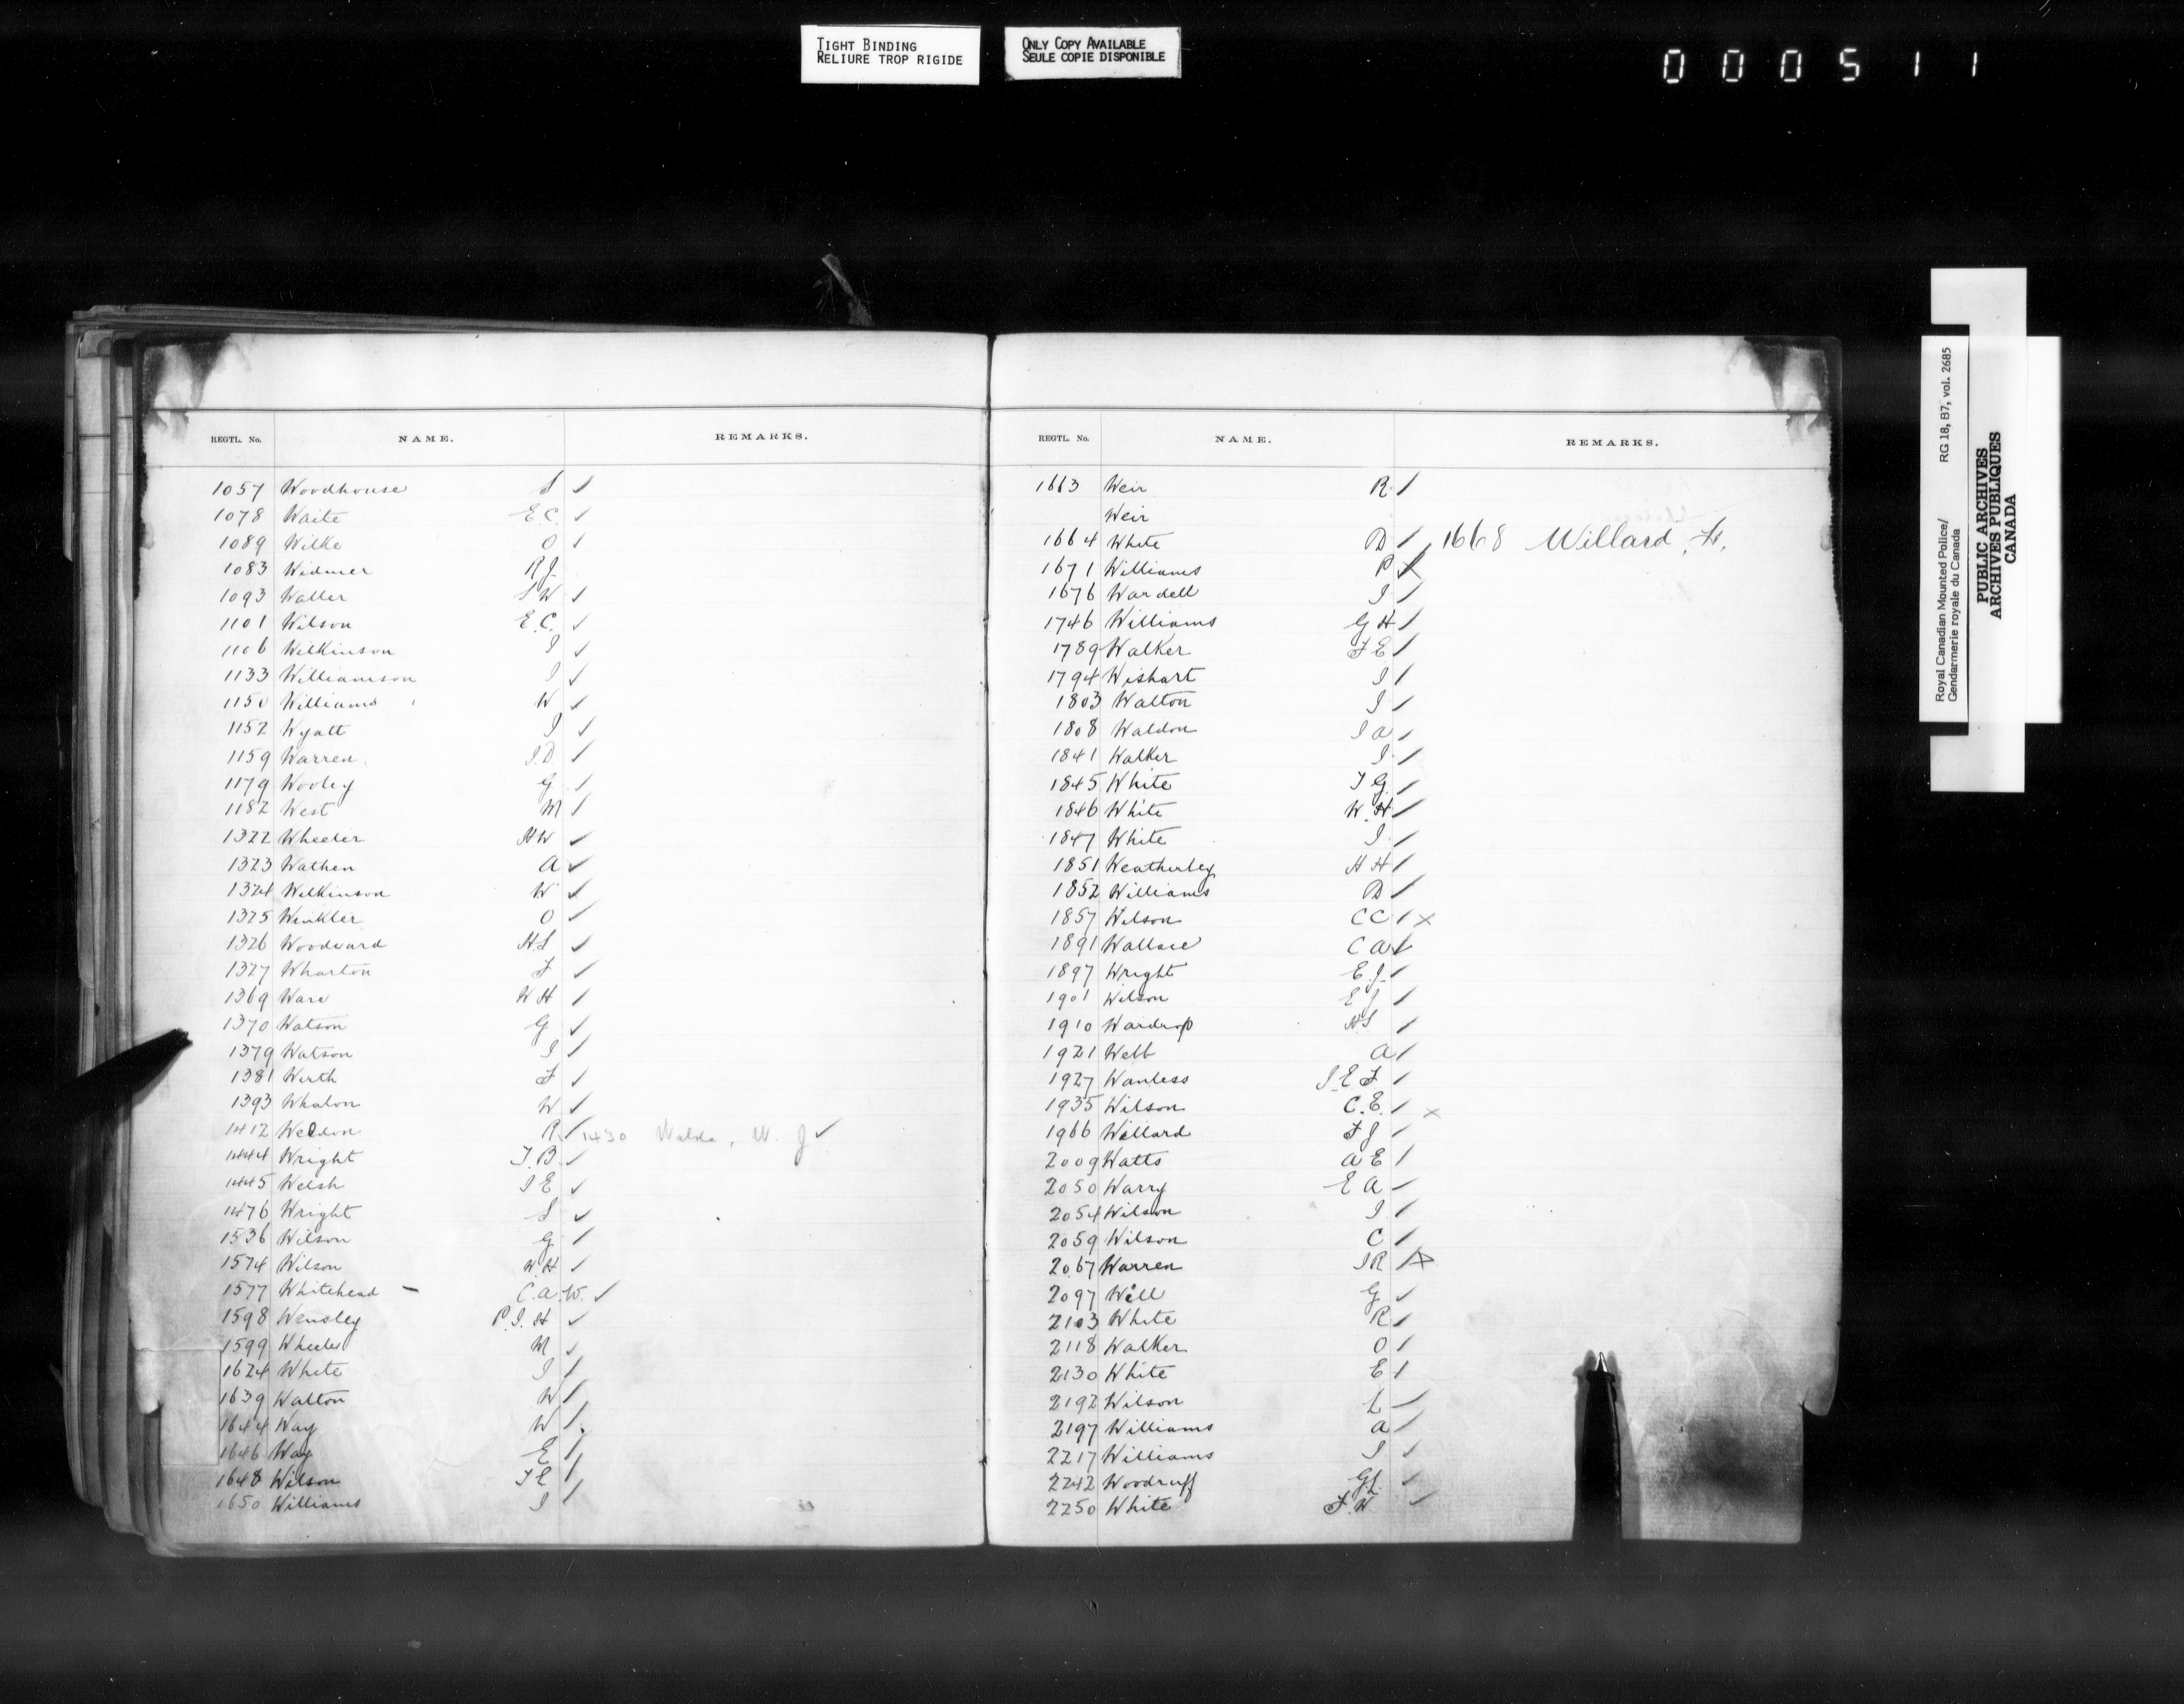 TIGHT BINDING
RELIURE TROP RIGIDE
ONLY COPY AVAILABLE
SEULE COPIE DISPONIBLE
000511
REGTL. No. NAME. REMARKS.
1057 Woodhouse S ✓
1078 Waite E.C. ✓
1089 Wilke O ✓
1083 Widmer R J
1093 Waller S W ✓
1101 Wilson E.C. ✓
1106 Wilkinson J ✓
1133 Williamson J ✓
1150 Williams W ✓
1152 Wyatt J ✓
1159 Warren J.D ✓
1179 Wooley G ✓
1182 West M ✓
1322 Wheeler H W ✓
1323 Wathen A ✓
1324 Wilkinson W ✓
1325 Winkler O ✓
1326 Woodward H.S ✓
1327 Wharton F ✓
1369 Ware W H ✓
1370 Watson G ✓
1379 Watson J ✓
1381 Wirth F ✓
1393 Whalon W ✓
1412 Weldon R ✓ 1430 W. J ✓
1444 Wright T.B ✓
1445 Welsh J E ✓
1476 Wright S ✓
1536 Wilson G ✓
1574 Wilson W.H ✓
1577 Whitehead – C.A.W. ✓
1598 Wensley P.J.H ✓
1599 Wheeler M ✓
1624 White J ✓
1639 Walton W ✓
1644 Way W ✓
1646 Way E ✓
1648 Wilson T E ✓
1650 Williams J ✓
REGTL. No. NAME. REMARKS.
1663 Weir R ✓
Weir
1664 White D ✓ 1668 Willard, F.
1671 Williams P ✓
1676 Wardell J ✓
1746 Williams G H ✓
1789 Walker F E ✓
1794 Wishart J ✓
1803 Walton J ✓
1808 Waldon J A ✓
1841 Walker J ✓
1845 White T G ✓
1846 White W.H ✓
1847 White J ✓
1851 Weatherley H H ✓
1852 Williams D ✓
1857 Wilson C C ✓ x
1891 Wallace C A ✓
1897 Wright E.J. ✓
1901 Wilson E J ✓
1910 Wardrop H.S ✓
1921 Webb A ✓
1927 Wanless J E F ✓
1935 Wilson C.E. ✓ x
1966 Willard F J ✓
2009 Watts A E ✓
2050 Warry E A ✓
2054 Wilson J ✓
2059 Wilson C ✓
2067 Warren J R ✓ x
2097 Will G ✓
2103 White R ✓
2118 Walker O ✓
2130 White E ✓
2192 Wilson L ✓
2197 Williams A ✓
2217 Williams J ✓
2242 Woodruff G L ✓
2250 White F.W ✓
Royal Canadian Mounted Police/ RG 18, B7, vol. 2685
Gendarmerie royale du Canada
PUBLIC ARCHIVES
ARCHIVES PUBLIQUES
CANADA